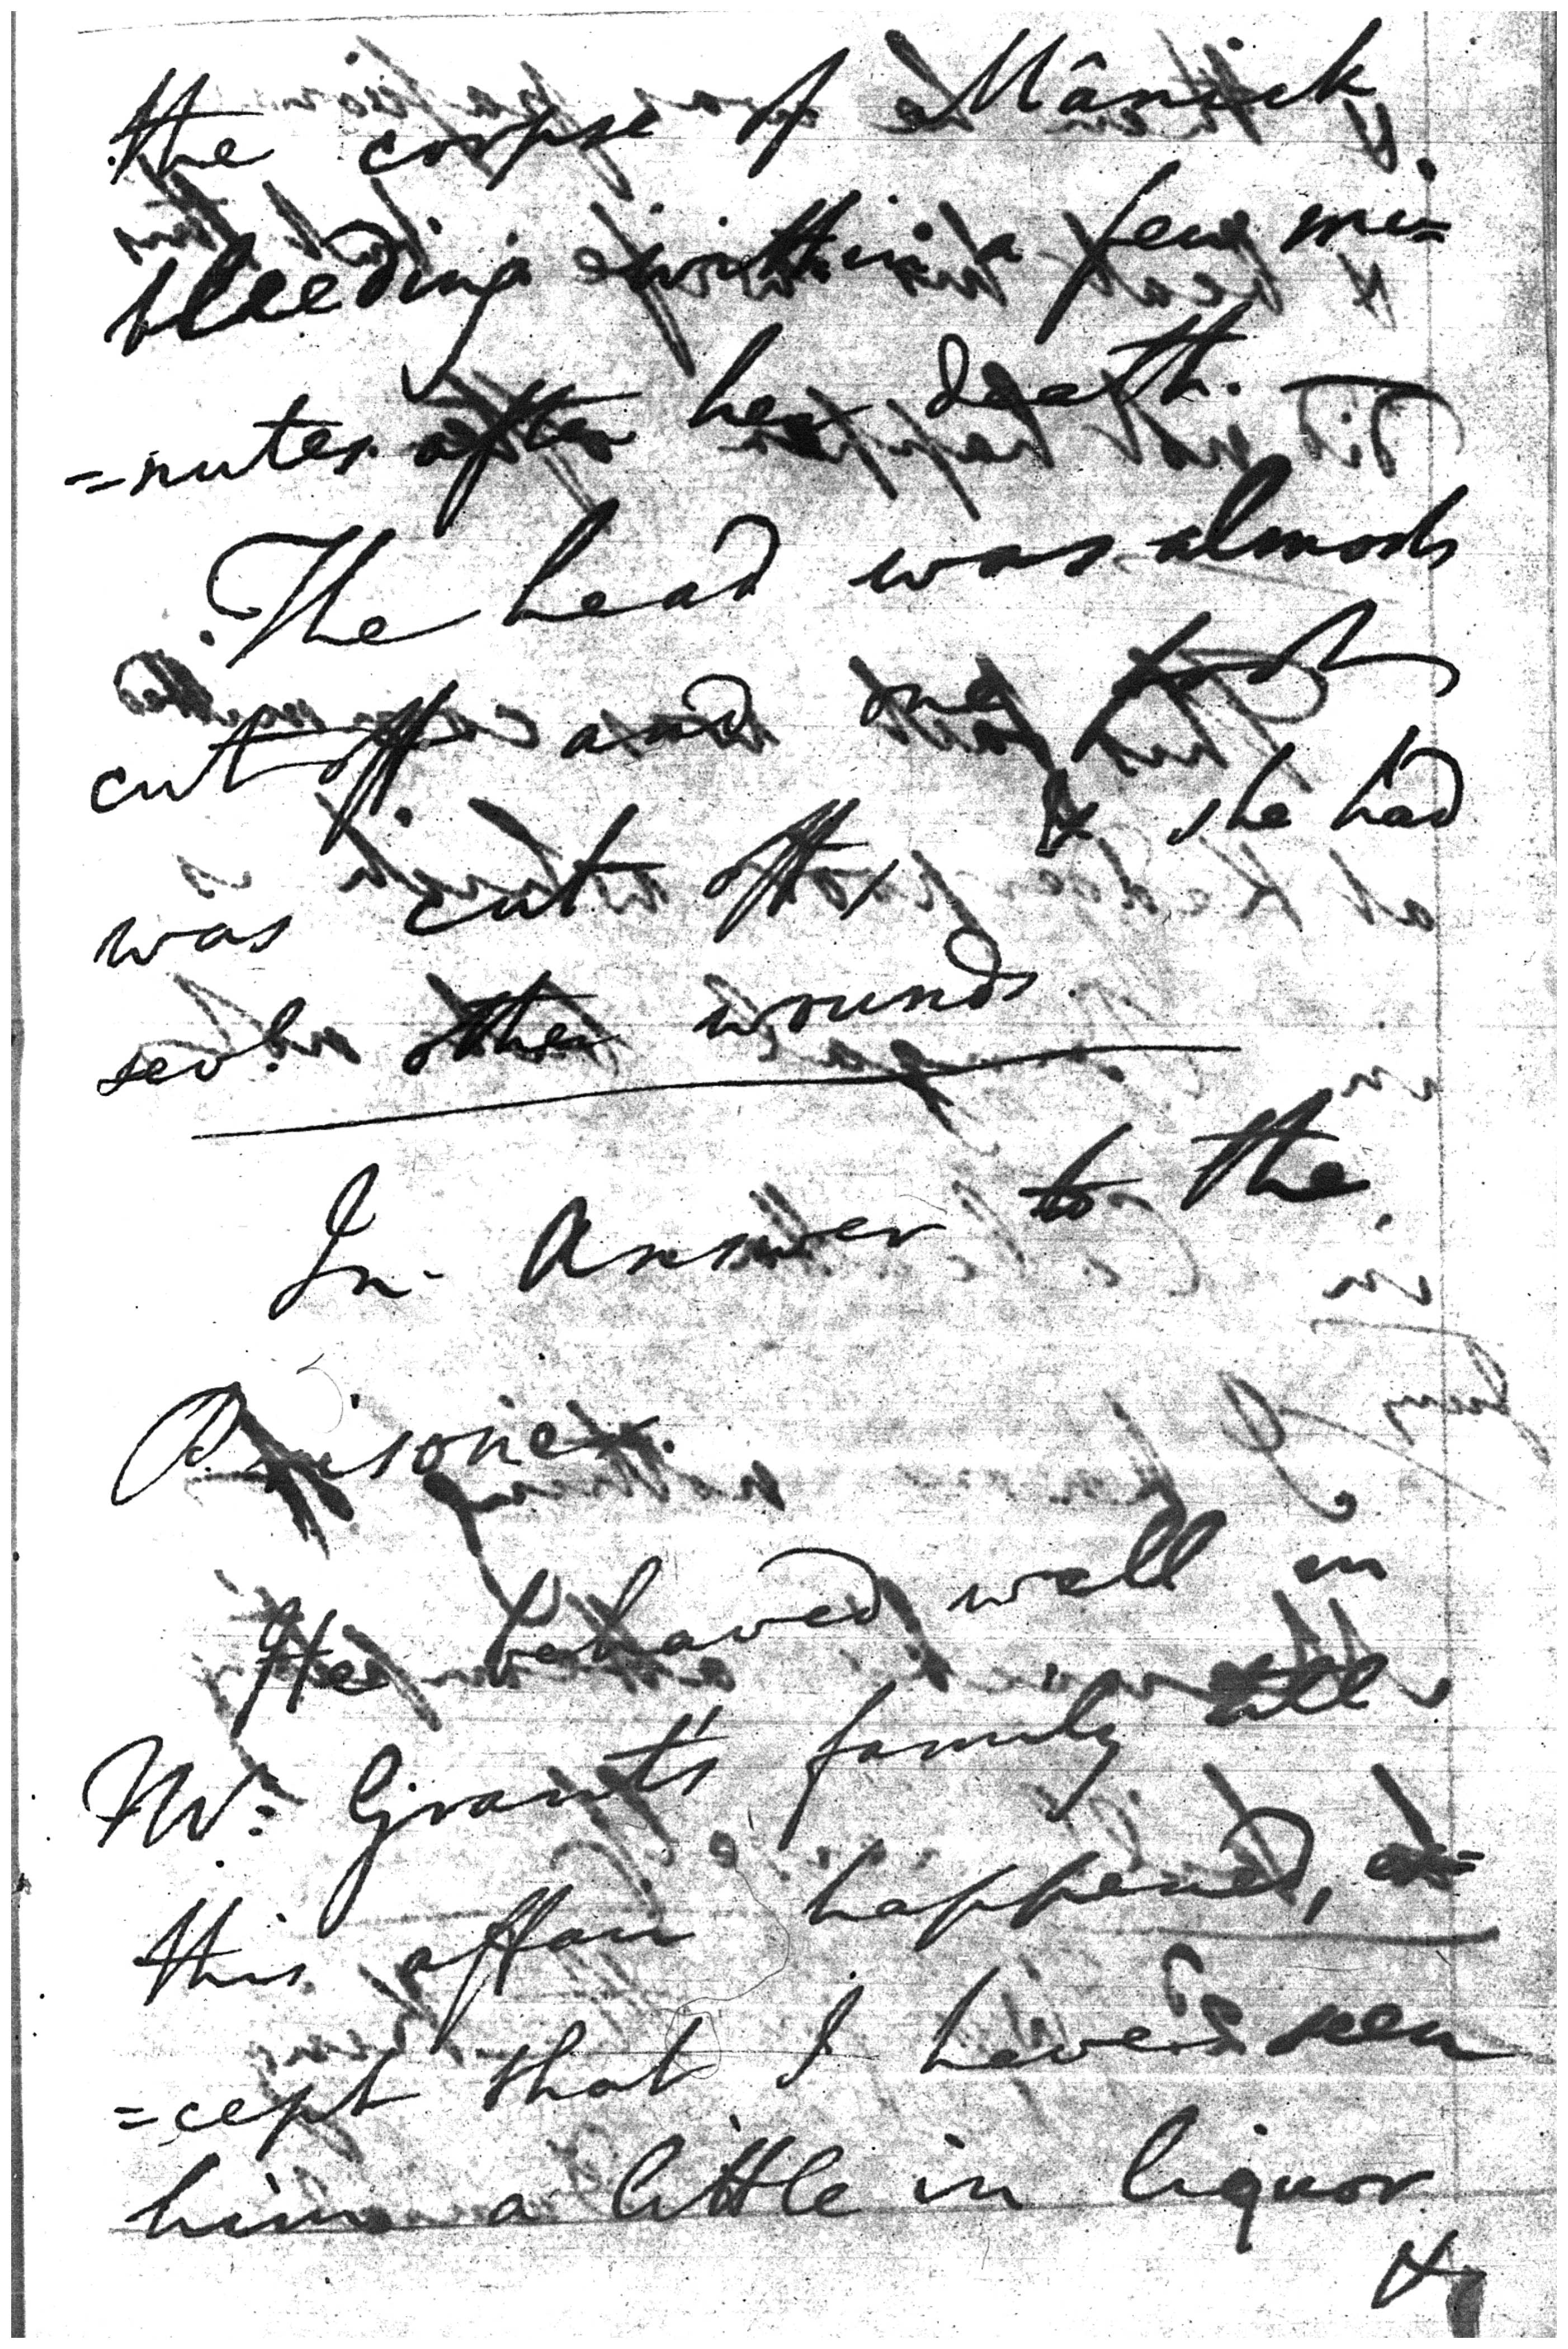 the corpse of Mânick
bleeding within a few mi=
=nutes after her death.
The head was almost
cut off and one foot
was cut off, & she had
sevl. other wounds.
In Answer to the
Prisoner.
He behaved well in
Mr. Grant's family till
this affair happened, ex=
=cept that I have seen
him a little in liquor
&